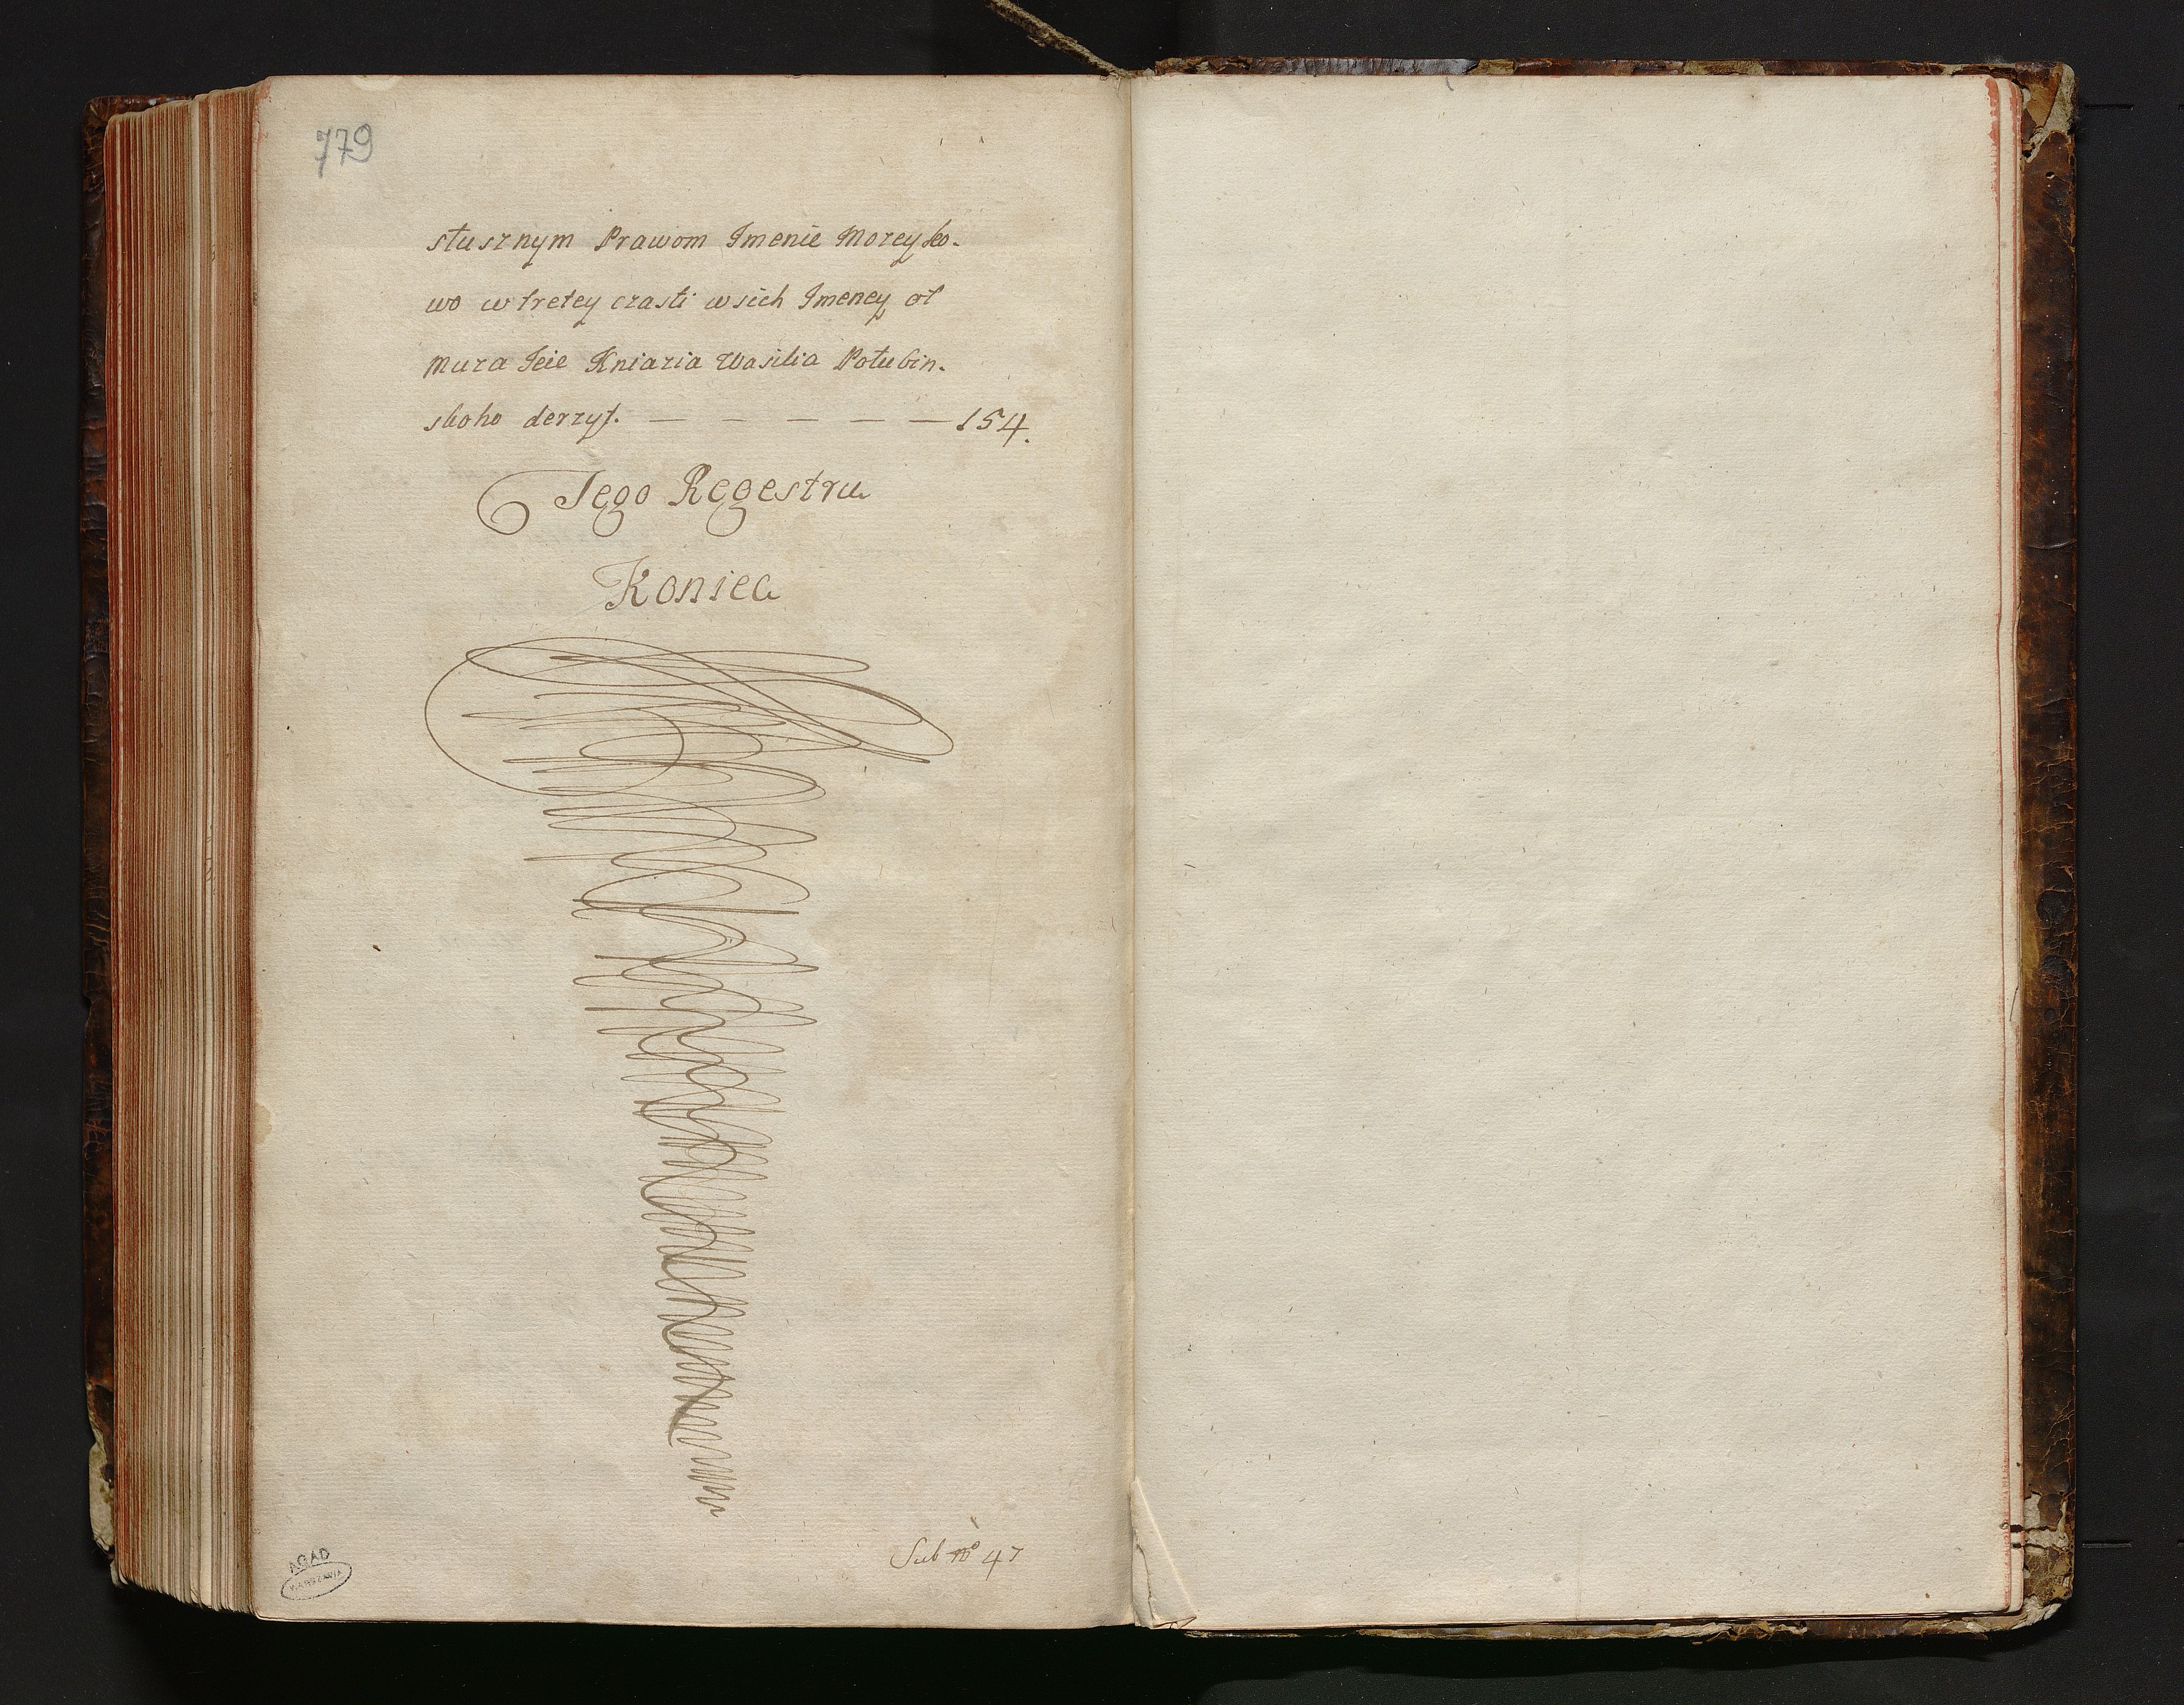 779
słusznym Prawom Imenie Moreyko-
wo w tretey czasti wsich Imeney ot
muza Jeie Kniazia Wasilia Połubin-
skoho derzyt. — — — — — 154.
Tego Regestru
Koniec
Sub No 47
AGAD
WARSZAWA